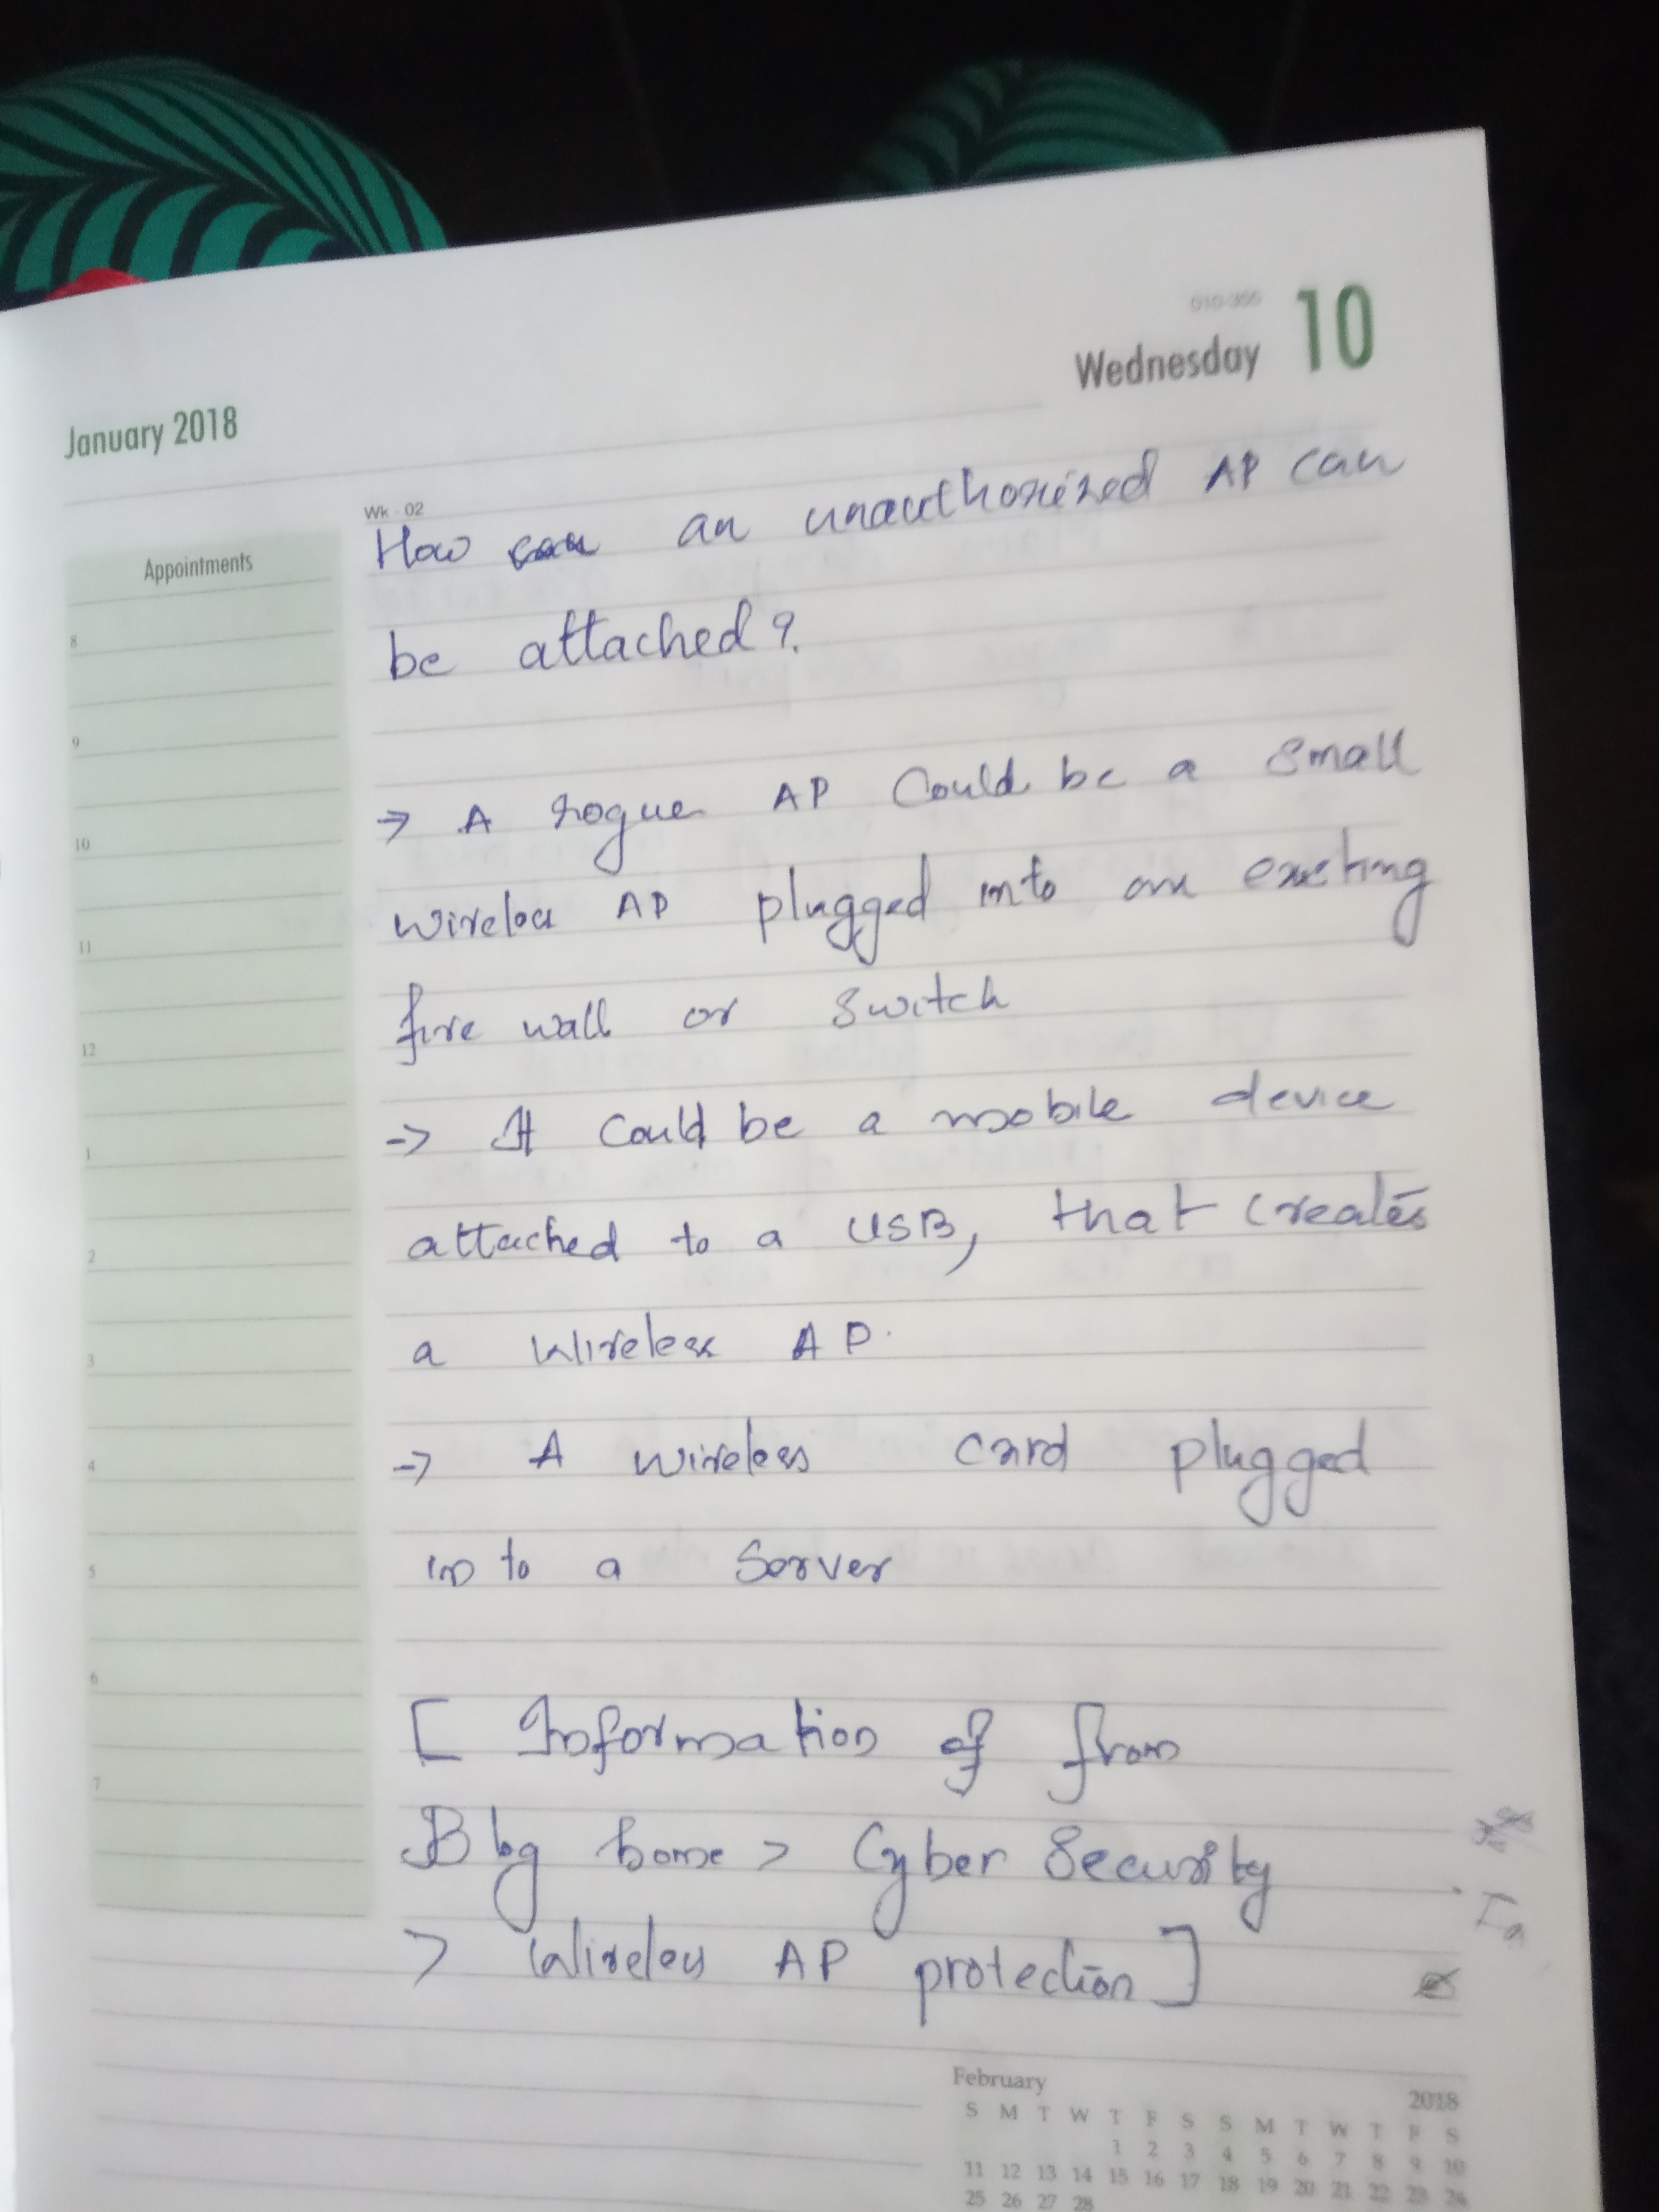 010-355
Wednesday 10
January 2018
Wk - 02
Appointments
How can an unauthorized AP can
be attached?
→ A rogue AP Could be a small
wireless AP plugged into an existing
fire wall or switch
→ It could be a mobile device
attached to a USB, that creates
a wireless AP.
→ A wireless card plugged
in to a Server
[ Information of from
Blog home > Cyber Security
> Wireless AP protection ]
8
9
10
11
12
1
2
3
4
5
6
7
February 2018
S M T W T F S S M T W T F S
1 2 3 4 5 6 7 8 9 10
11 12 13 14 15 16 17 18 19 20 21 22 23 24
25 26 27 28